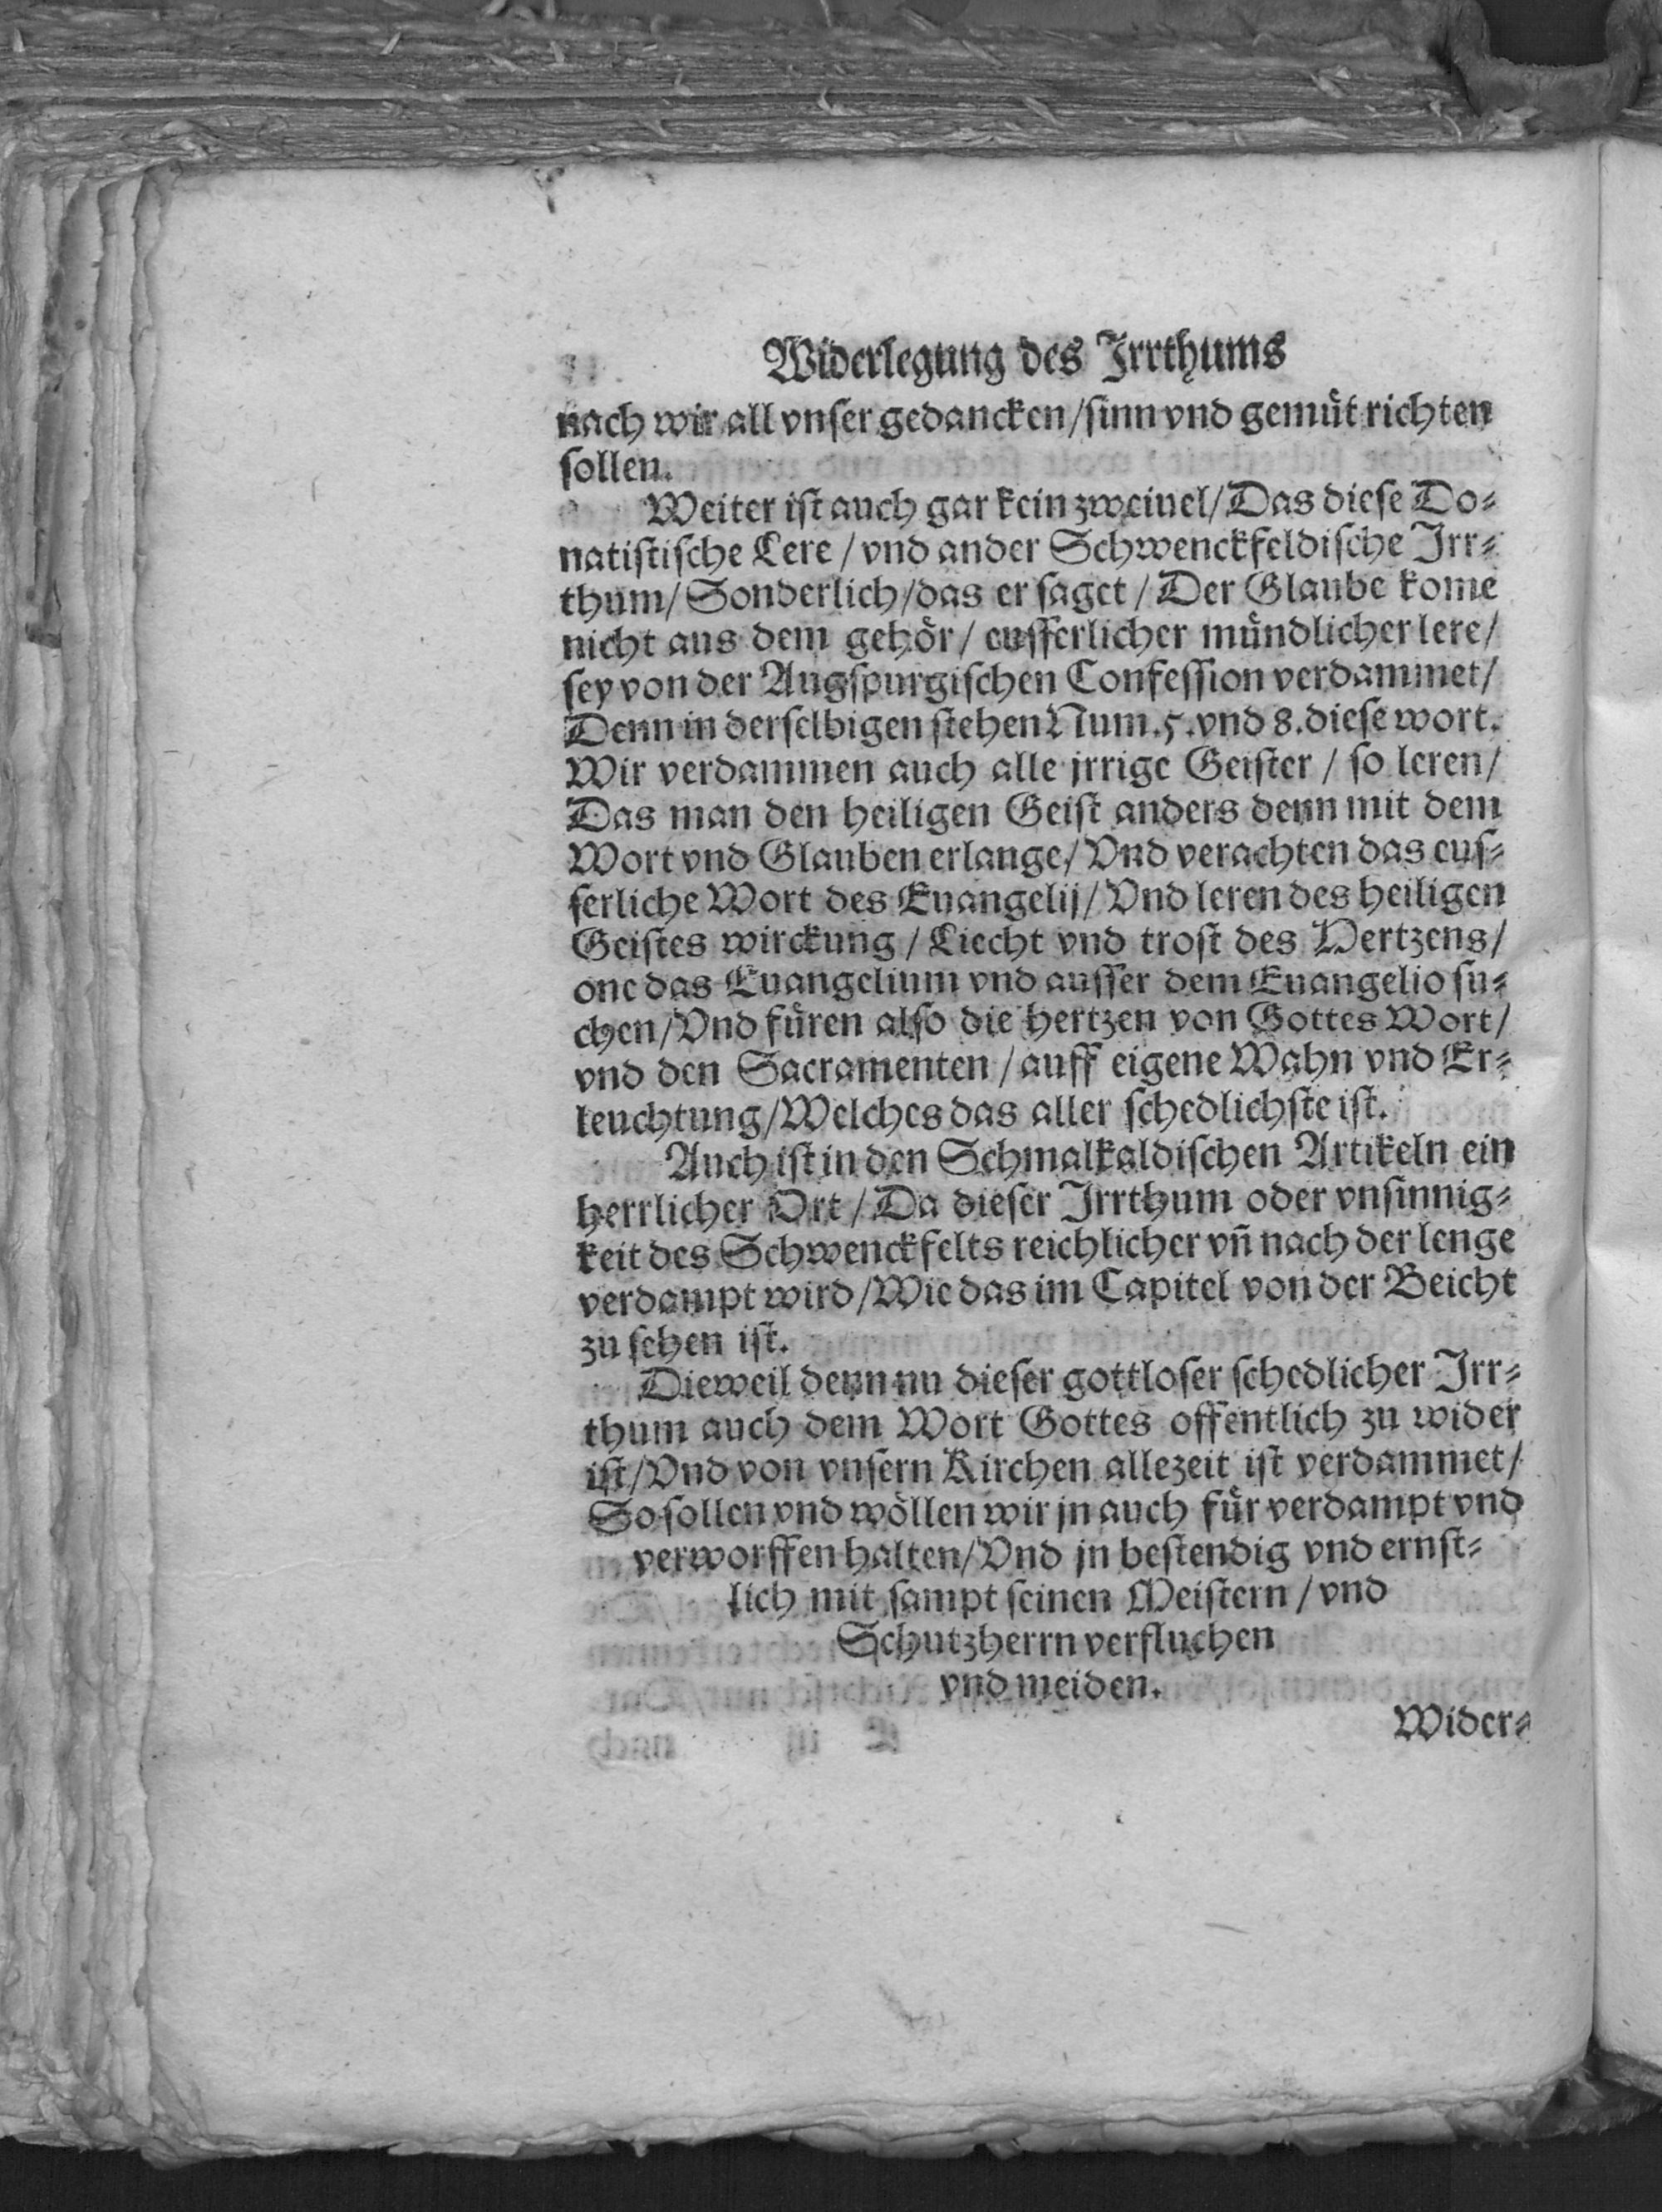 Widerlegung des Irrthums
nach wir all vnser gedancken/sinn vnd gemuͤt richten
sollen.
Weiter ist auch gar kein zweiuel/Das diese Do⸗
natistische Lere/vnd ander Schwenckfeldische Irr⸗
thum/Sonderlich/das er saget/Der Glaube kome
nicht aus dem gehoͤr/eusserlicher muͤndlicher lere/
sey von der Augspurgischen Confession verdammet/
Denn in derselbigen stehen Num.5.vnd 8.diese wort.
Wir verdammen auch alle jrrige Geister/so leren/
Das man den heiligen Geist anders denn mit dem
Wort vnd Glauben erlange/Vnd verachten das eus⸗
serliche Wort des Euangelij/Vnd leren des heiligen
Geistes wirckung/Liecht vnd trost des Hertzens/
one das Euangelium vnd ausser dem Euangelio su⸗
chen/Vnd fuͤren also die hertzen von Gottes Wort/
vnd den Sacramenten/auff eigene Wahn vnd Er⸗
leuchtung/Welches das aller schedlichste ist.
Auch ist in den Schmalkaldischen Artikeln ein
herrlicher Ort/Da dieser Irrthum oder vnsinnig⸗
keit des Schwenckfelts reichlicher vñ nach der lenge
verdampt wird/Wie das im Capitel von der Beicht
zu sehen ist.
Dieweil denn nu dieser gottloser schedlicher Irr⸗
thum auch dem Wort Gottes offentlich zu wider
ist/Vnd von vnsern Kirchen allezeit ist verdammet/
So sollen vnd woͤllen wir jn auch fuͤr verdampt vnd
verworffen halten/Vnd jn bestendig vnd ernst⸗
lich mit sampt seinen Meistern/vnd
Schutzherrn verfluchen
vnd meiden.
Wider⸗